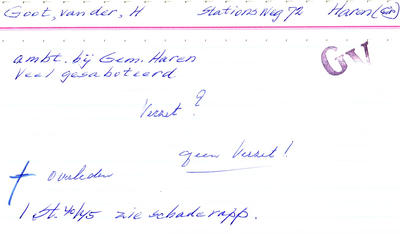 Goot, van der, H Stationsweg 72 Haren (Gn)
GV
ambt. bij Gem. Haren
Veel gesaboteerd
Verzet?
geen Verzet!
† Overleden
1 St. 40/45 zie schaderapp.